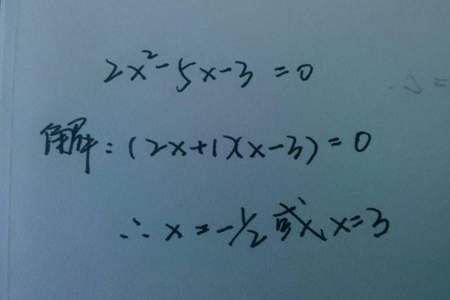 2x²-5x-3=0
解:(2x+1)(x-3)=0
∴x=-1/2或x=3